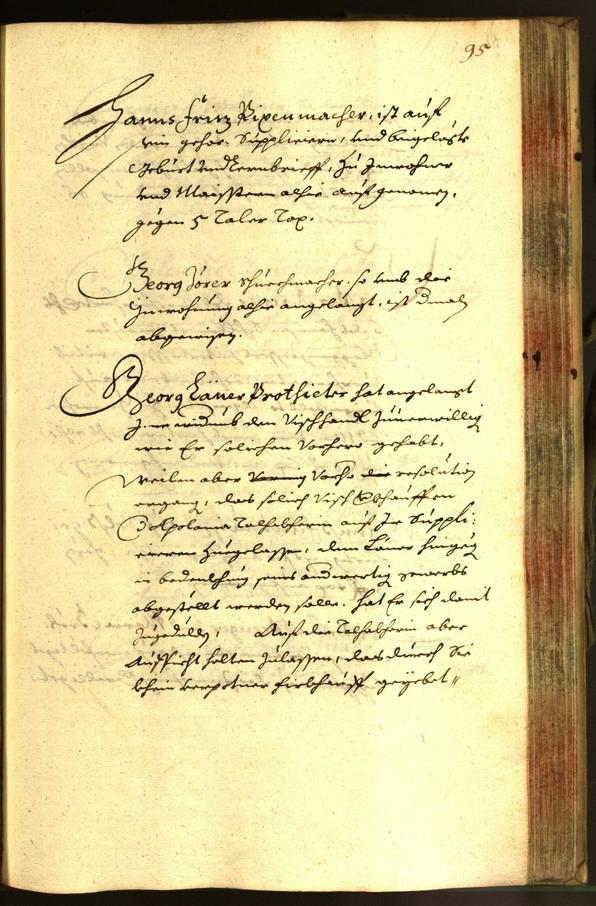 95
Hanns Fritz Pixenmacher, ist auf
sein gehor: Suppliciern, und beigelegte
Geburt und Lernbrieff, zu Inwohner
und Maistern alhie aufgenomen,
gegen 5 Taler Tax.
Georg Jörer Schuechmacher, so umb die
Inwohnung alhie angelangt, ist dmals
abgewisen.
Georg Läner Protsieter hat angelangt
Ime widerumb den Vischhandl zuverwilligen
wie Er solichen vorhero gehabt,
Weilen aber vorho die resolution
ergang, das solich Visch verkhauffen
der Apolonia Talhoferin auf Ir Suppli:
cieren zuegelassen, dem Läner hingegen
in bedenkhung seins anderwertig gewerbs
abgestellt werden solle. Hat Er sich damit
zugedulden, Auf die Talhoferin aber
Aufsicht halten zulassen, das durch Sie
khein verpotner fürkhauff geyebet